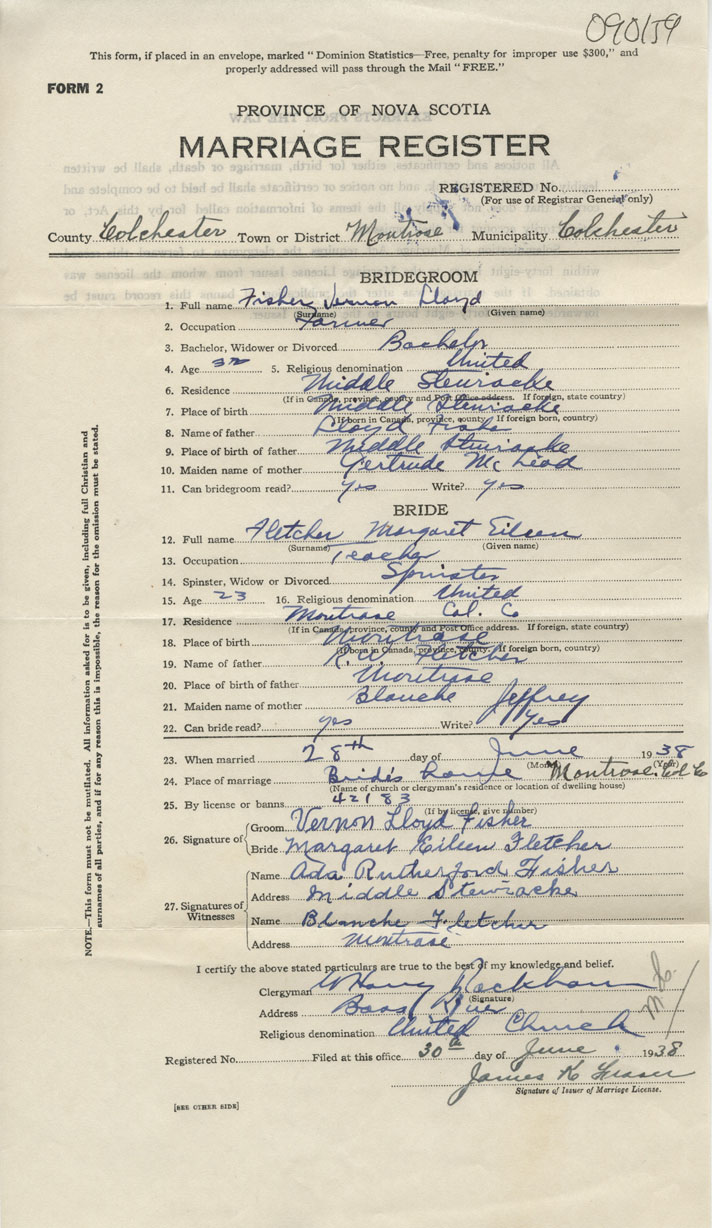 090139
This form, if placed in an envelope, marked "Dominion Statistics—Free, penalty for improper use $300," and
properly addressed will pass through the Mail "FREE."
FORM 2
PROVINCE OF NOVA SCOTIA
MARRIAGE REGISTER
REGISTERED No.
(For use of Registrar General only)
County Colchester Town or District Montrose Municipality Colchester
BRIDEGROOM
1. Full name Fisher Vernon Lloyd
(Surname) (Given name)
2. Occupation Farmer
3. Bachelor, Widower or Divorced Bachelor
4. Age 32 5. Religious denomination United
6. Residence Middle Stewiacke
(If in Canada, province, county and Post Office address. If foreign, state country)
7. Place of birth Middle Stewiacke
(If born in Canada, province, county. If foreign born, country)
8. Name of father Lloyd Fisher
9. Place of birth of father Middle Stewiacke
10. Maiden name of mother Gertrude McLeod
11. Can bridegroom read? yes Write? yes
BRIDE
12. Full name Fletcher Margaret Eileen
(Surname) (Given name)
13. Occupation Teacher
14. Spinster, Widow or Divorced Spinster
15. Age 23 16. Religious denomination United
17. Residence Montrose Col. Co
(If in Canada, province, county and Post Office address. If foreign, state country)
18. Place of birth Montrose
(If born in Canada, province, county. If foreign born, country)
19. Name of father Fletcher
20. Place of birth of father Montrose
21. Maiden name of mother Blanche Jeffrey
22. Can bride read? yes Write? yes
23. When married 28th day of June 1938
(Month) (Year)
24. Place of marriage Bride's home Montrose. Col Co
(Name of church or clergyman's residence or location of dwelling house)
25. By license or banns 42183
(If by license, give number)
26. Signature of Groom Vernon Lloyd Fisher
Bride Margaret Eileen Fletcher
27. Signatures of Witnesses
Name Ada Rutherford Fisher
Address Middle Stewiacke
Name Blanche Fletcher
Address Montrose
I certify the above stated particulars are true to the best of my knowledge and belief.
Clergyman W Harry
(Signature)
Address Bass River
Religious denomination United Church
Registered No. Filed at this office 30th day of June 1938
James K Fraser
Signature of Issuer of Marriage License.
[SEE OTHER SIDE]
NOTE.—This form must not be mutilated. All information asked for is to be given, including full Christian and
surnames of all parties, and if for any reason this is impossible, the reason for the omission must be stated.